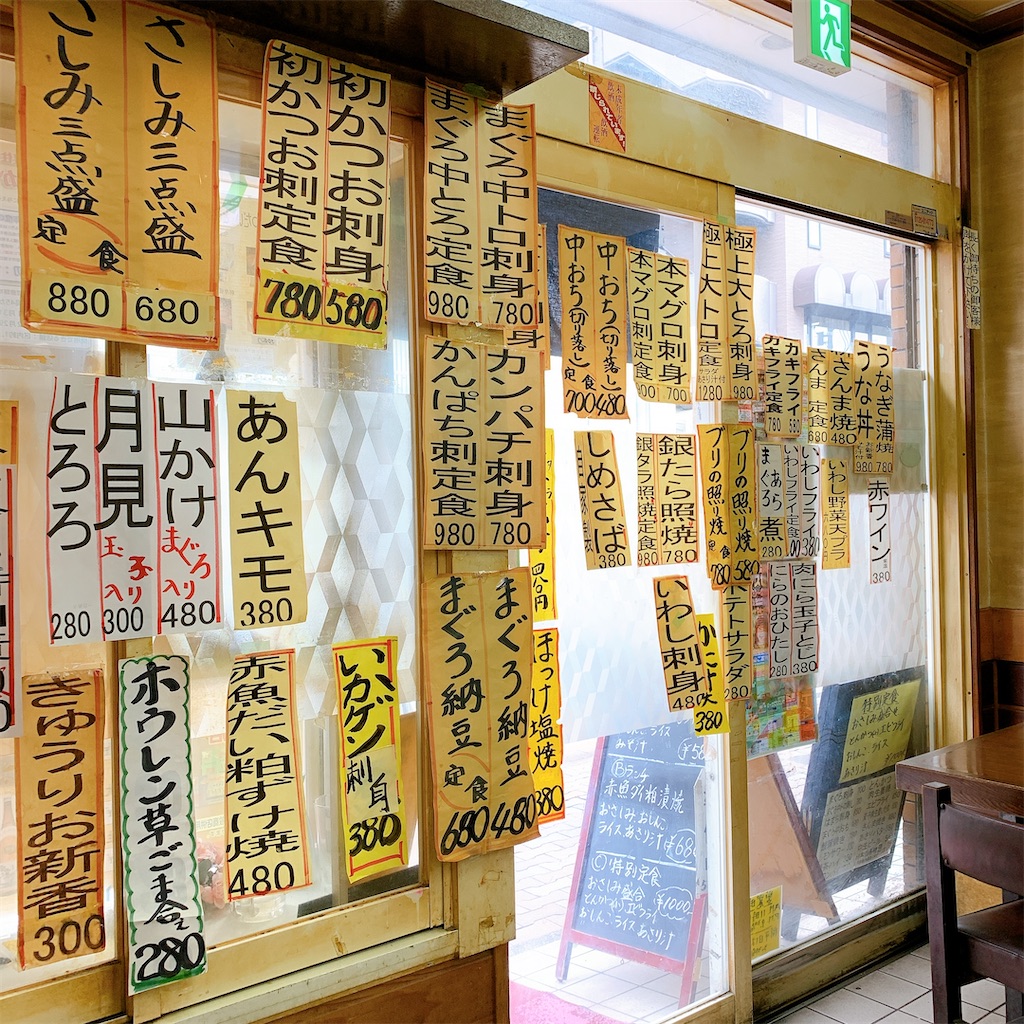 さしみ三点盛
680
さしみ三点盛
定食
880
初かつお刺身
580
初かつお刺定食
780
まぐろ中トロ刺身
780
まぐろ中とろ定食
980
中おち(切り落し)
480
中おち(切り落し)定食
700
本マグロ刺身
700
本マグロ刺定食
極上大とろ刺身
980
極上大トロ定食
サラダ
あさり汁付
1280
カキフライ
480
カキフライ定食
780
さんま焼
480
さんま定食
680
うなぎ蒲焼
980
うな丼
780
とろろ
280
月見
玉子入り
300
山かけ
まぐろ入り
480
あんキモ
380
カンパチ刺身
780
かんぱち刺定食
980
しめさば
自家製
380
銀たら照焼
780
銀ダラ照焼定食
980
ブリの照り焼
580
ブリの照り焼
780
まぐろあら煮
280
いわしフライ
いわしフライ定食
いわし野菜天プラ
赤ワイン
380
きゅうりお新香
300
ホウレン草ごま合え
280
赤魚だい粕ずけ焼
480
いかゲソ刺身
380
まぐろ納豆
480
まぐろ納豆
定食
680
ほっけ塩焼
380
いわし刺身
480
380
ポテトサラダ
280
にらのおひたし
280
肉にら玉子とじ
380
みそ汁
Bランチ
赤魚ダイ粕漬焼
おさしみおしんこ
ライスあさり汁
¥680
C特別定食
おさしみ盛合
¥1000
とんかつ又はエビフライ
おしんこライスあさり汁
特別定食
おさしみ盛合
おしんこ ライス